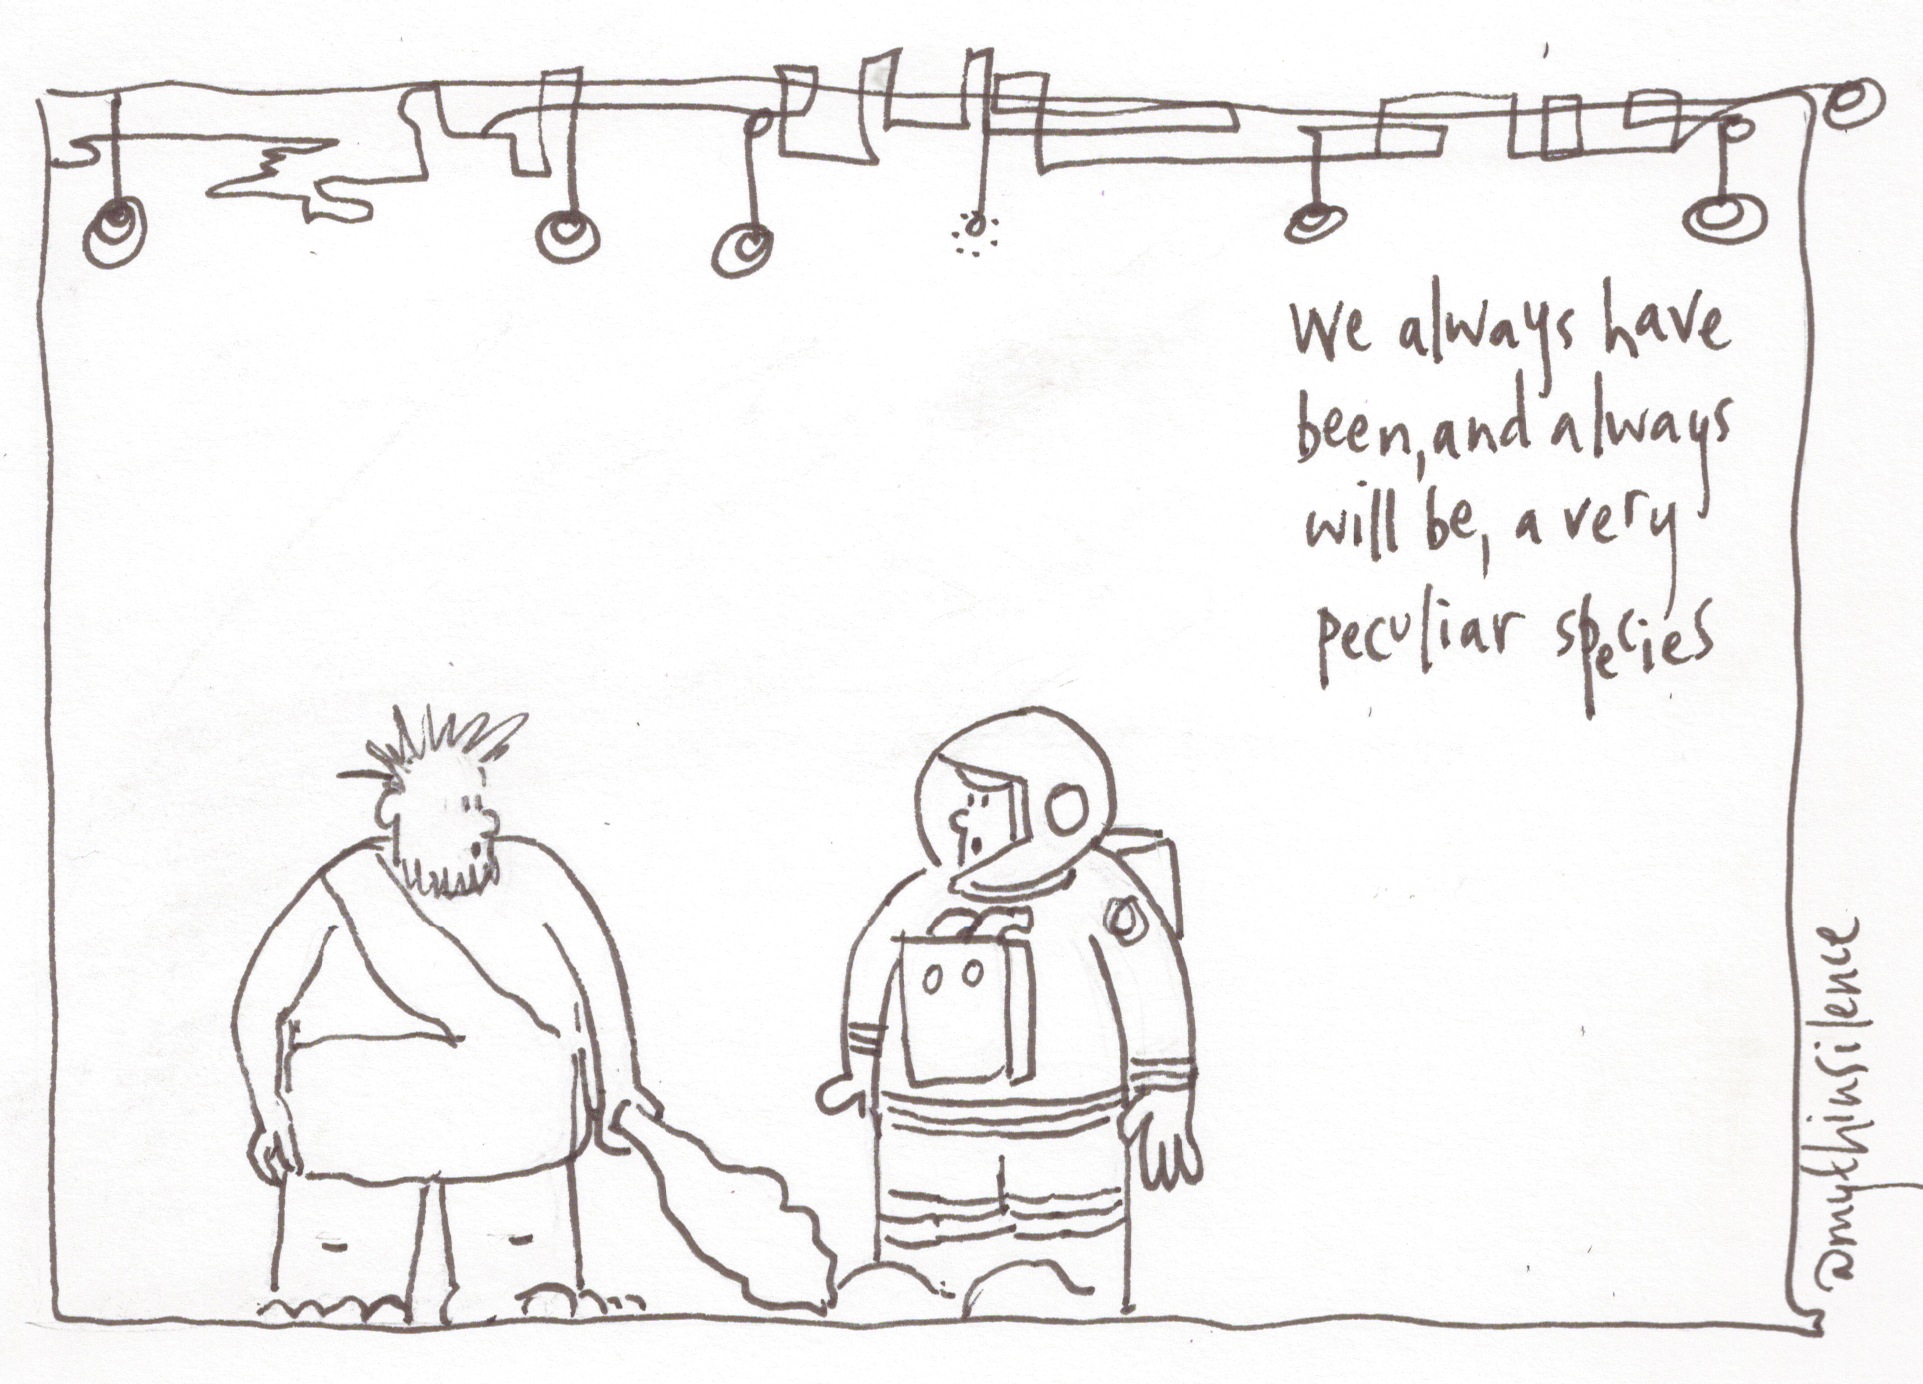 We always have
been, and always
will be, a very
peculiar species
@mythinsilence